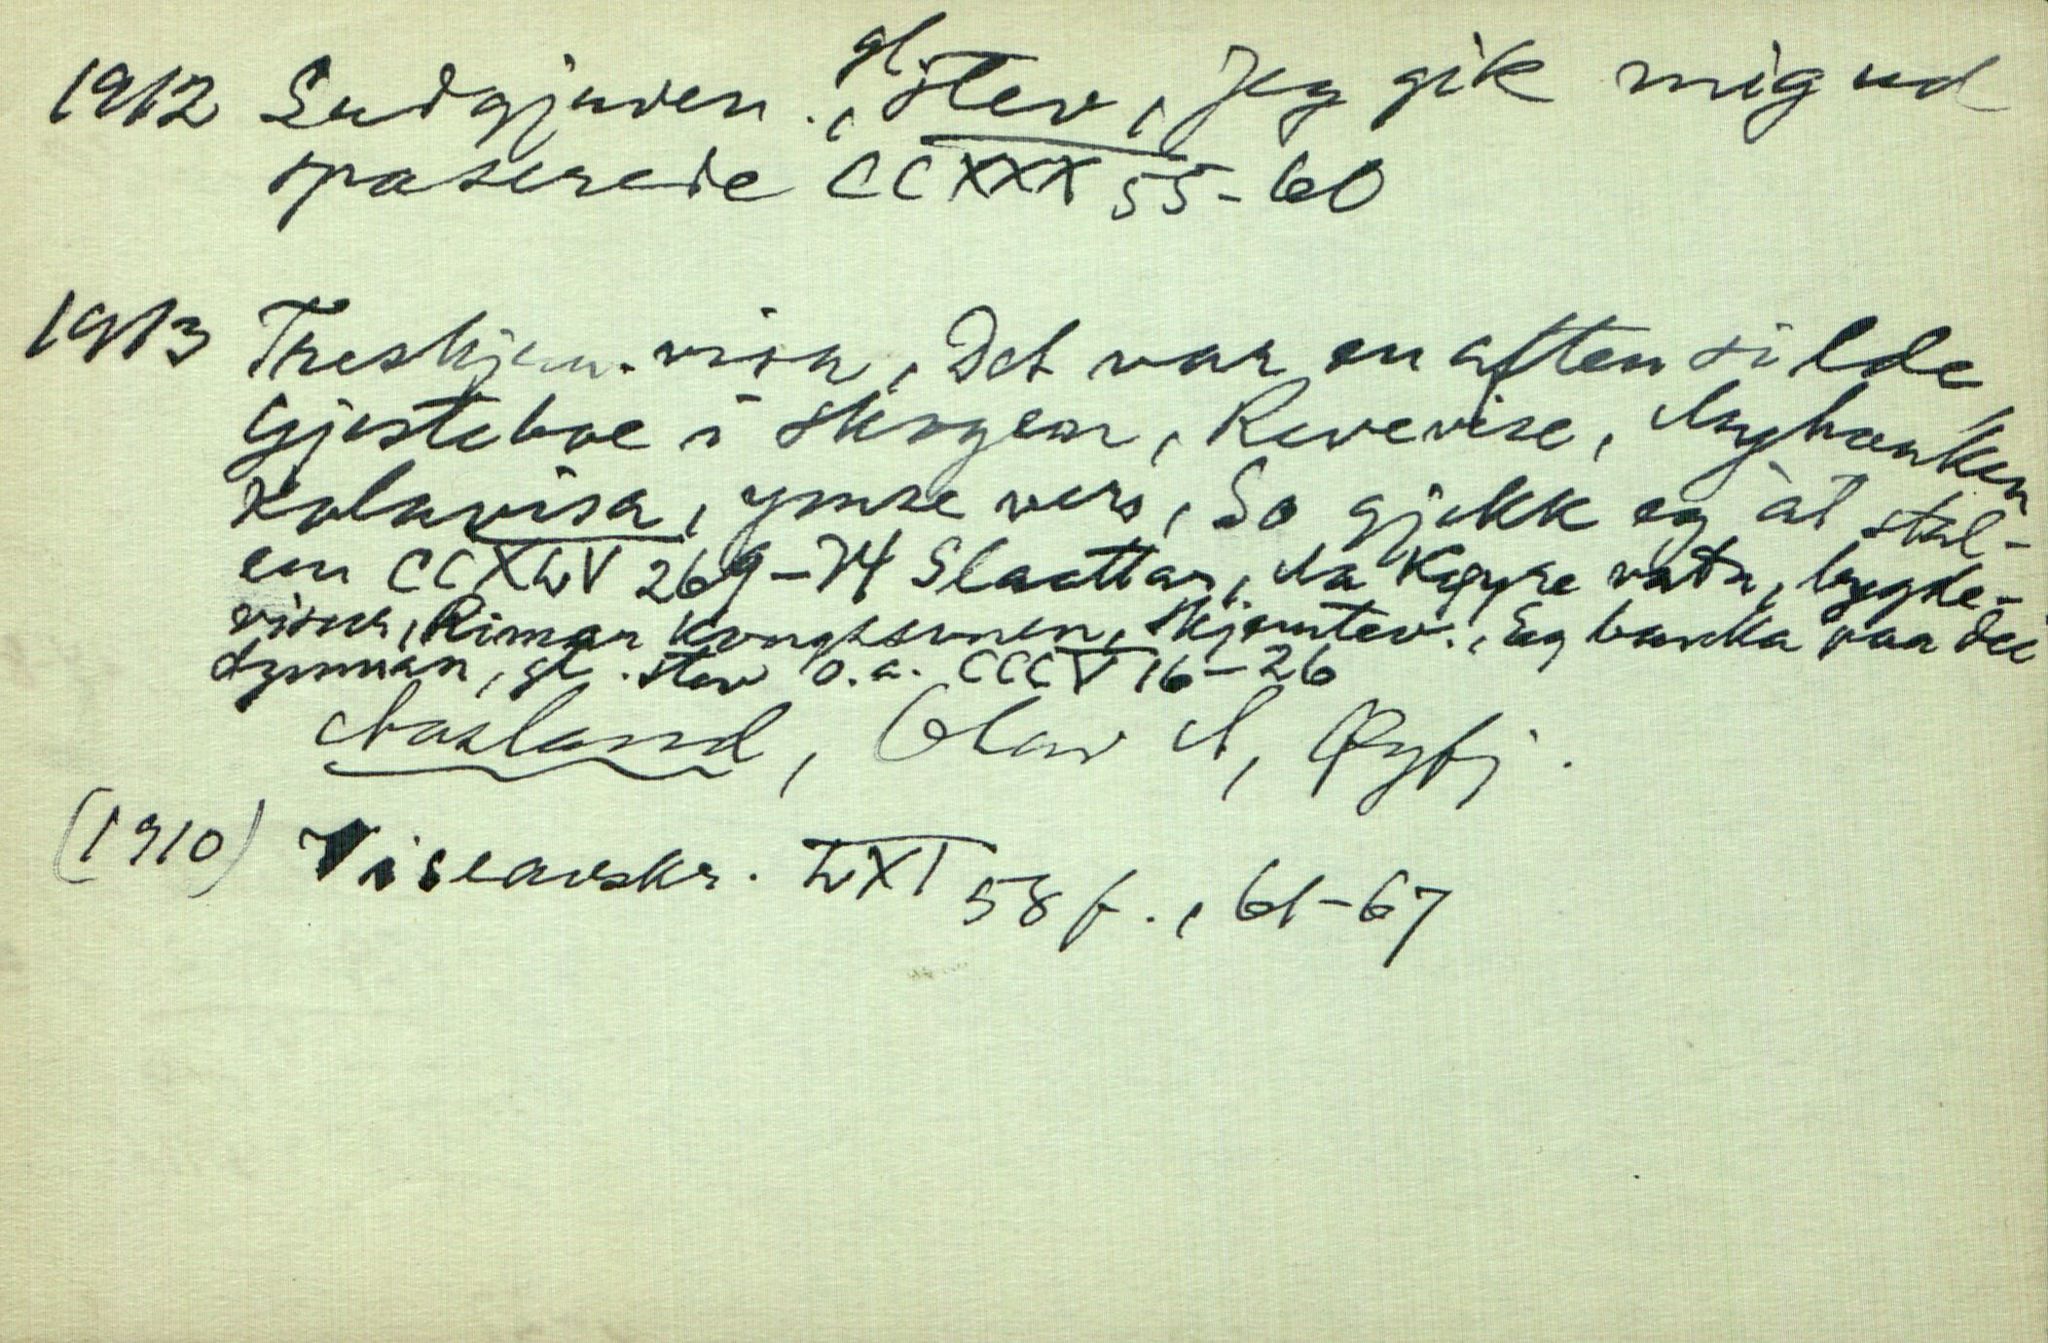 1912 Ludgjuven., gl. stev, Jeg gik mig ud
spaserede CCXXX 55-60
1913 Treskjem. visa, Det var en aften silde,
Gjesteboe i skogen, Revevise,
Kolavisa, ymse vers, So gjekk eg åt stal-
en CCXLV 269-74 Slaattar, Aa Køyre vatn, bygde-
viser, Rimar Kongssonen, Skjemtev., Eg banka paa dei
dynnan, gl. stev o.a. CCCV 16-26
Aasland, Olav A, Fyfj.
(1910) Viseavskr. LXI 58f., 61-67